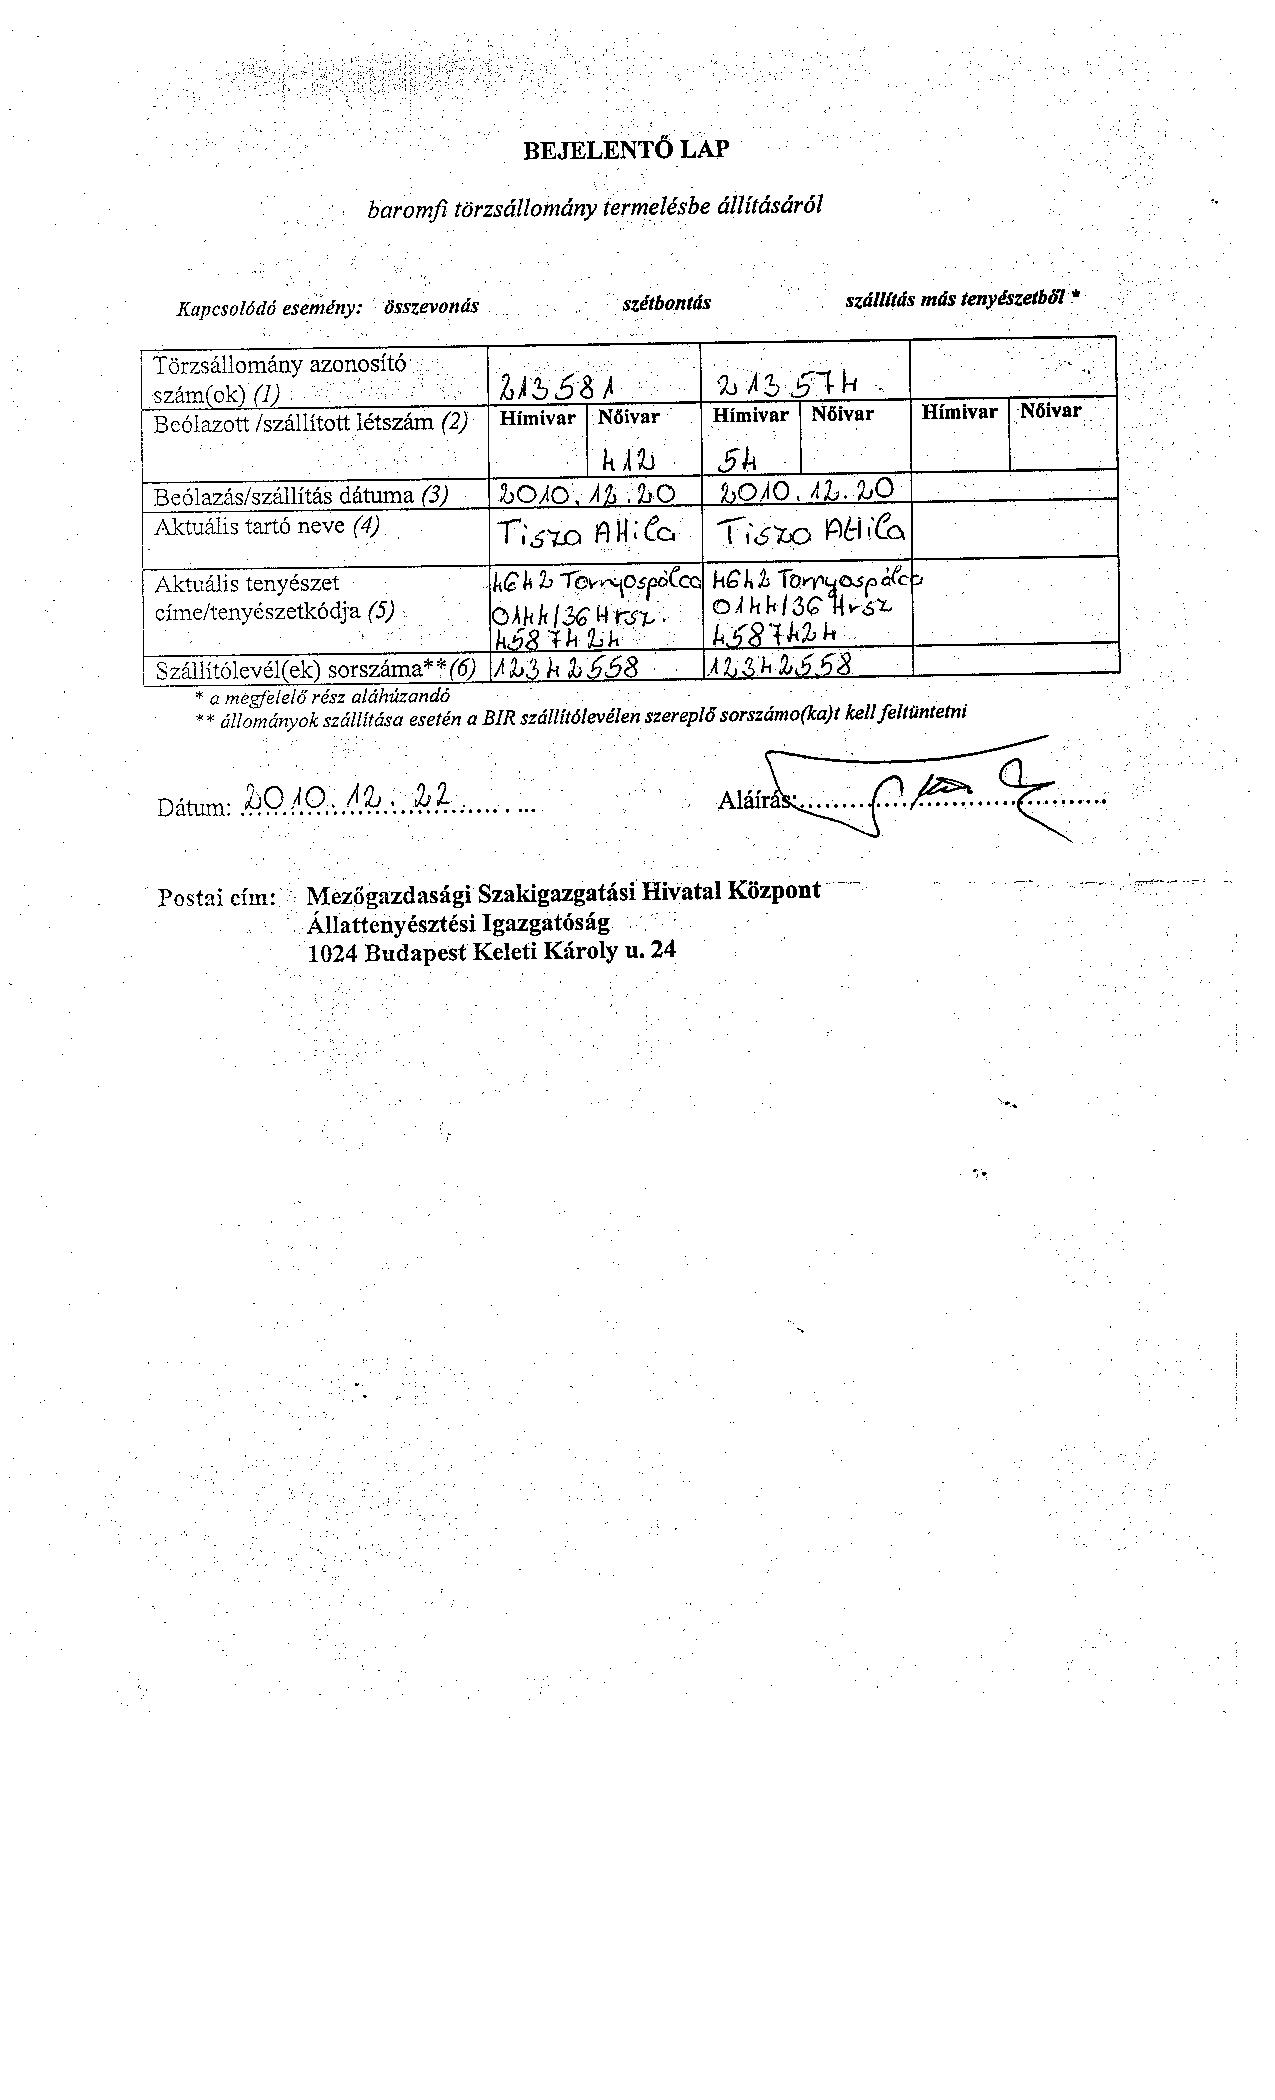 BEJELENTŐ LAP
baromfi törzsállomány termelésbe állításáról
Kapcsolódó esemény: összevonás szétbontás szállítás más tenyészetből *
Törzsállomány azonosító
szám(ok) (1) 213581 213574
Beólazott /szállított létszám (2) Hímivar Nőivar Hímivar Nőivar Hímivar Nőivar
412 54
Beólazás/szállítás dátuma (3) 2010.12.20 2010.12.20
Aktuális tartó neve (4) Tisza Attila Tisza Attila
Aktuális tenyészet 4642 Tornyospálca 4642 Tornyospálca
címe/tenyészetkódja (5) 0144/36 Hrsz. 0144/36 Hrsz
4587424 4587424
Szállítólevél(ek) sorszáma** (6) 12342558 12342558
* a megfelelő rész aláhúzandó
** állományok szállítása esetén a BIR szállítólevélen szereplő sorszámo(ka)t kell feltüntetni
Dátum: 2010.12.22. Aláírás:
Postai cím: Mezőgazdasági Szakigazgatási Hivatal Központ
Állattenyésztési Igazgatóság
1024 Budapest Keleti Károly u. 24